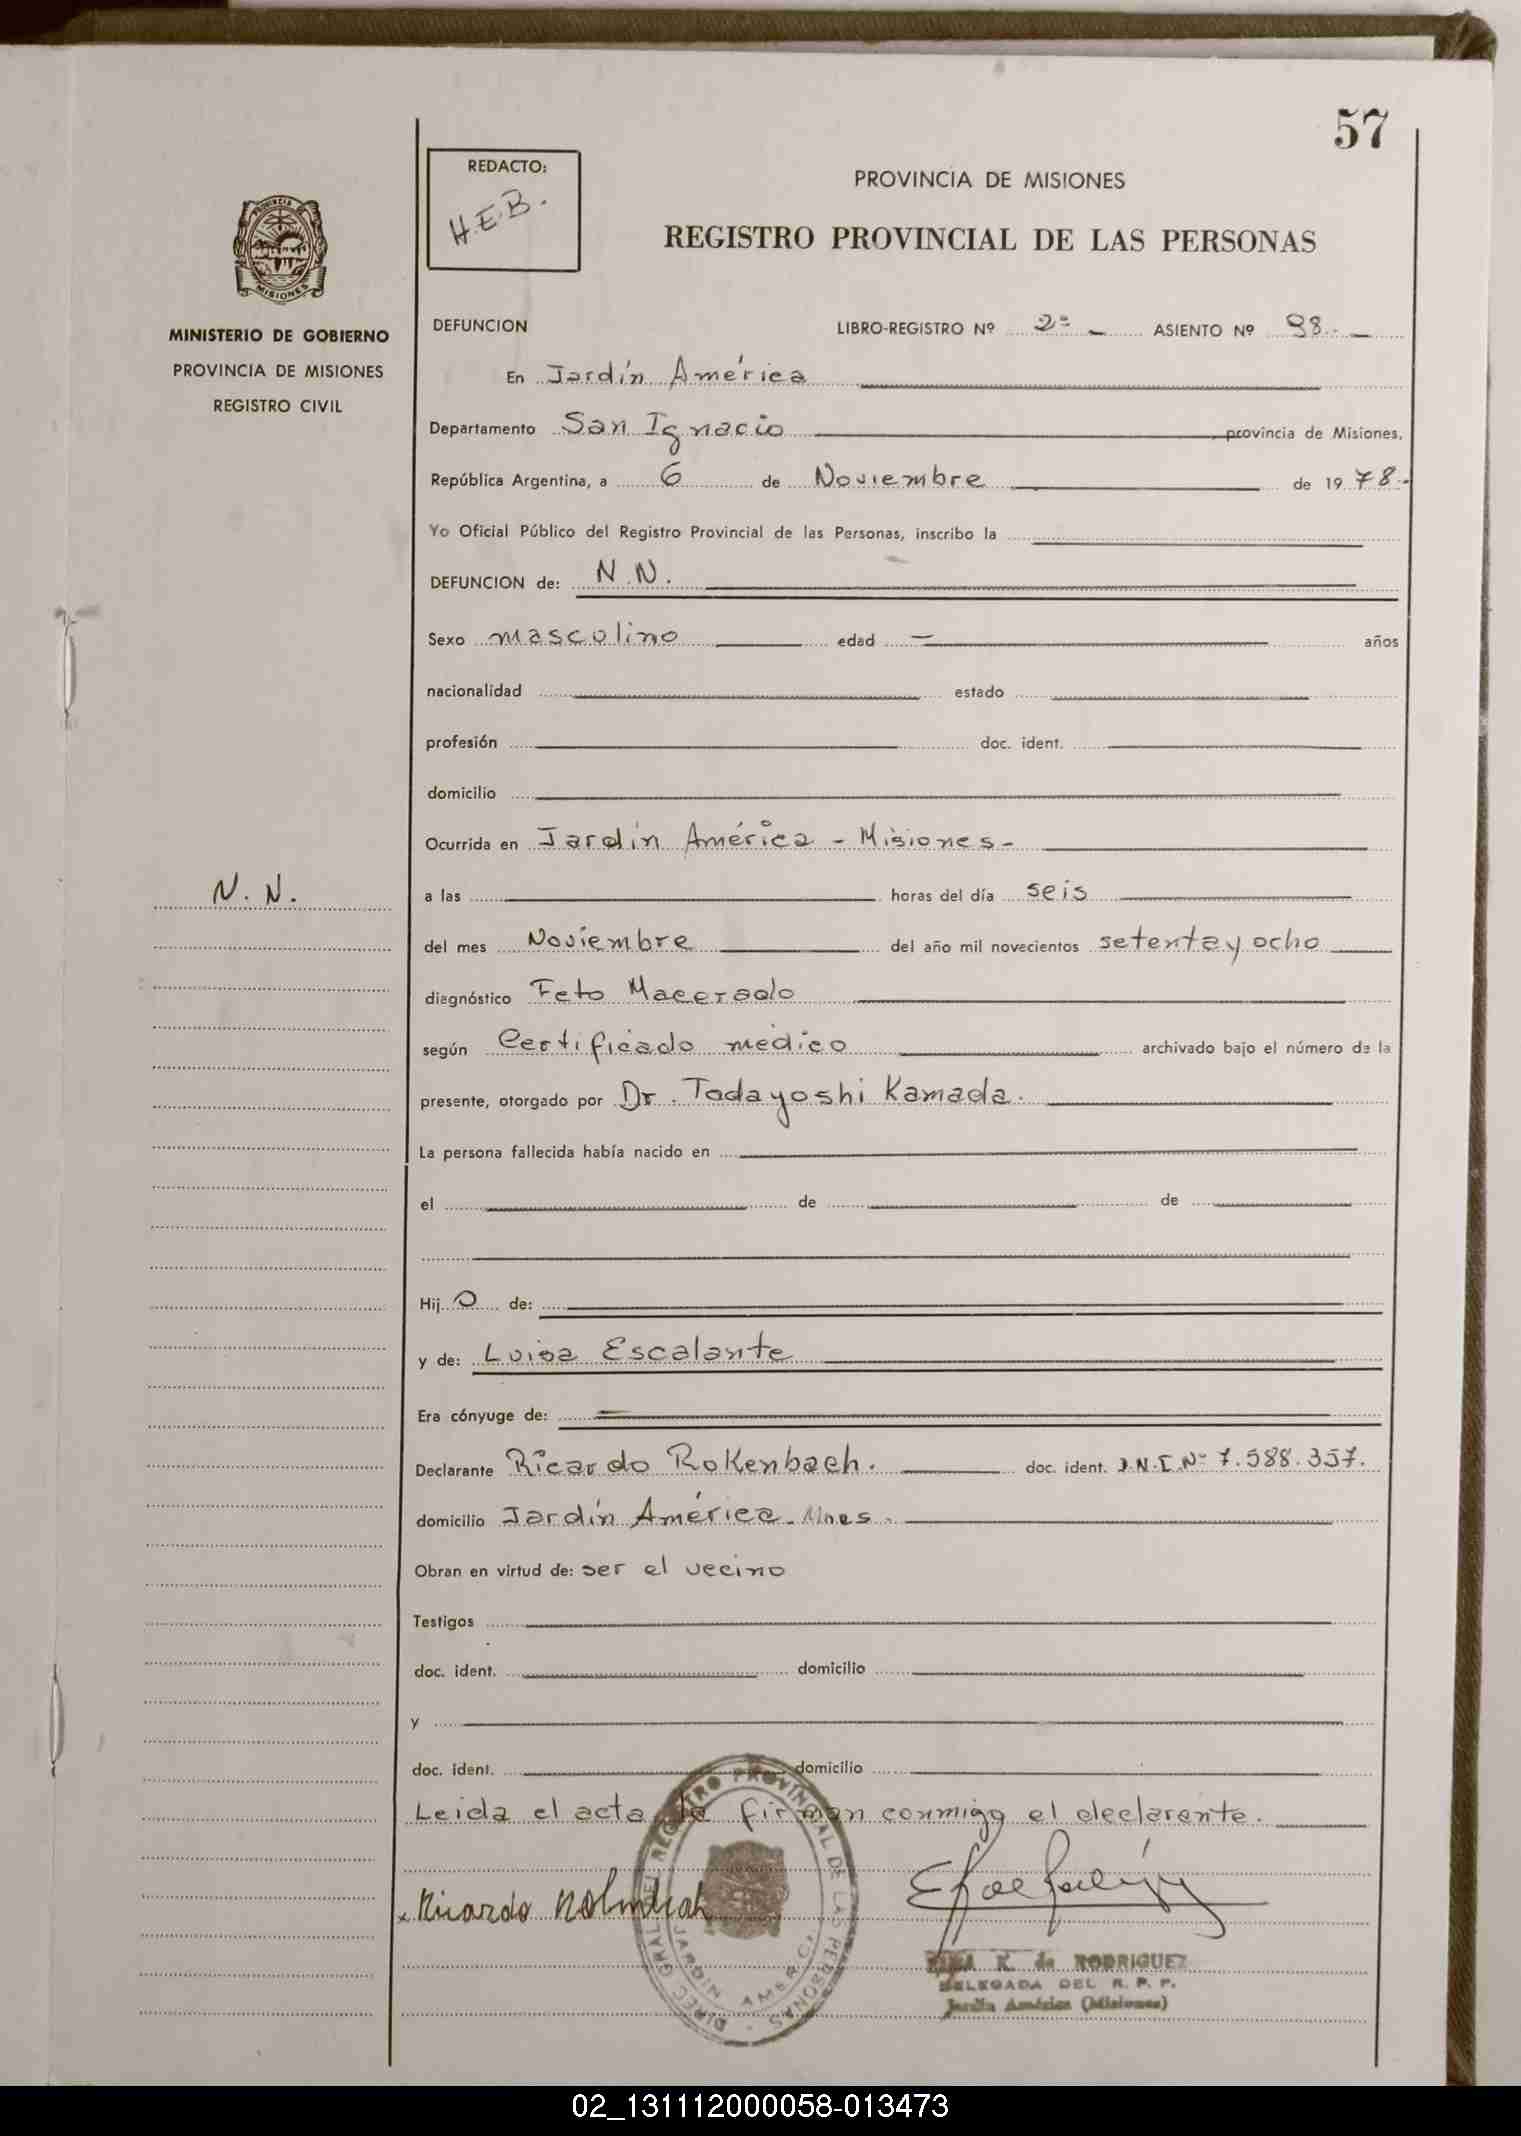 57
REDACTO:
H.E.B.
PROVINCIA DE MISIONES
REGISTRO PROVINCIAL DE LAS PERSONAS
PROVINCIA DE
MISIONES
MINISTERIO DE GOBIERNO
PROVINCIA DE MISIONES
REGISTRO CIVIL
N. N.
DEFUNCION LIBRO-REGISTRO Nº 2º - ASIENTO Nº 98. -
En Jardín América
Departamento San Ignacio provincia de Misiones,
República Argentina, a 6 de Noviembre de 1978.-
Yo Oficial Público del Registro Provincial de las Personas, inscribo la
DEFUNCION de: N.N.
Sexo mascolino edad — años
nacionalidad estado
profesión doc. ident.
domicilio
Ocurrida en Jardín América - Misiones -
a las horas del día seis
del mes Noviembre del año mil novecientos setenta y ocho
diagnóstico Feto Macerado
según Certificado médico archivado bajo el número de la
presente, otorgado por Dr. Tadayoshi Kamada.
La persona fallecida había nacido en
el de de
Hij o de:
y de: Luisa Escalante
Era cónyuge de:
Declarante Ricardo Rokenbach. doc. ident. D.N.I. Nº 7.588.357.
domicilio Jardín América - Mnes.
Obran en virtud de: ser el vecino
Testigos
doc. ident. domicilio
y
doc. ident. domicilio
Leida el acta la firman conmigo el declarante.
DIREC. GRAL. DEL REGISTRO PROVINCIAL DE LAS PERSONAS
JARDIN AMERICA
Ricardo
K. de RODRIGUEZ
DELEGADA DEL R. P. P.
Jardín América (Misiones)
02_131112000058-013473